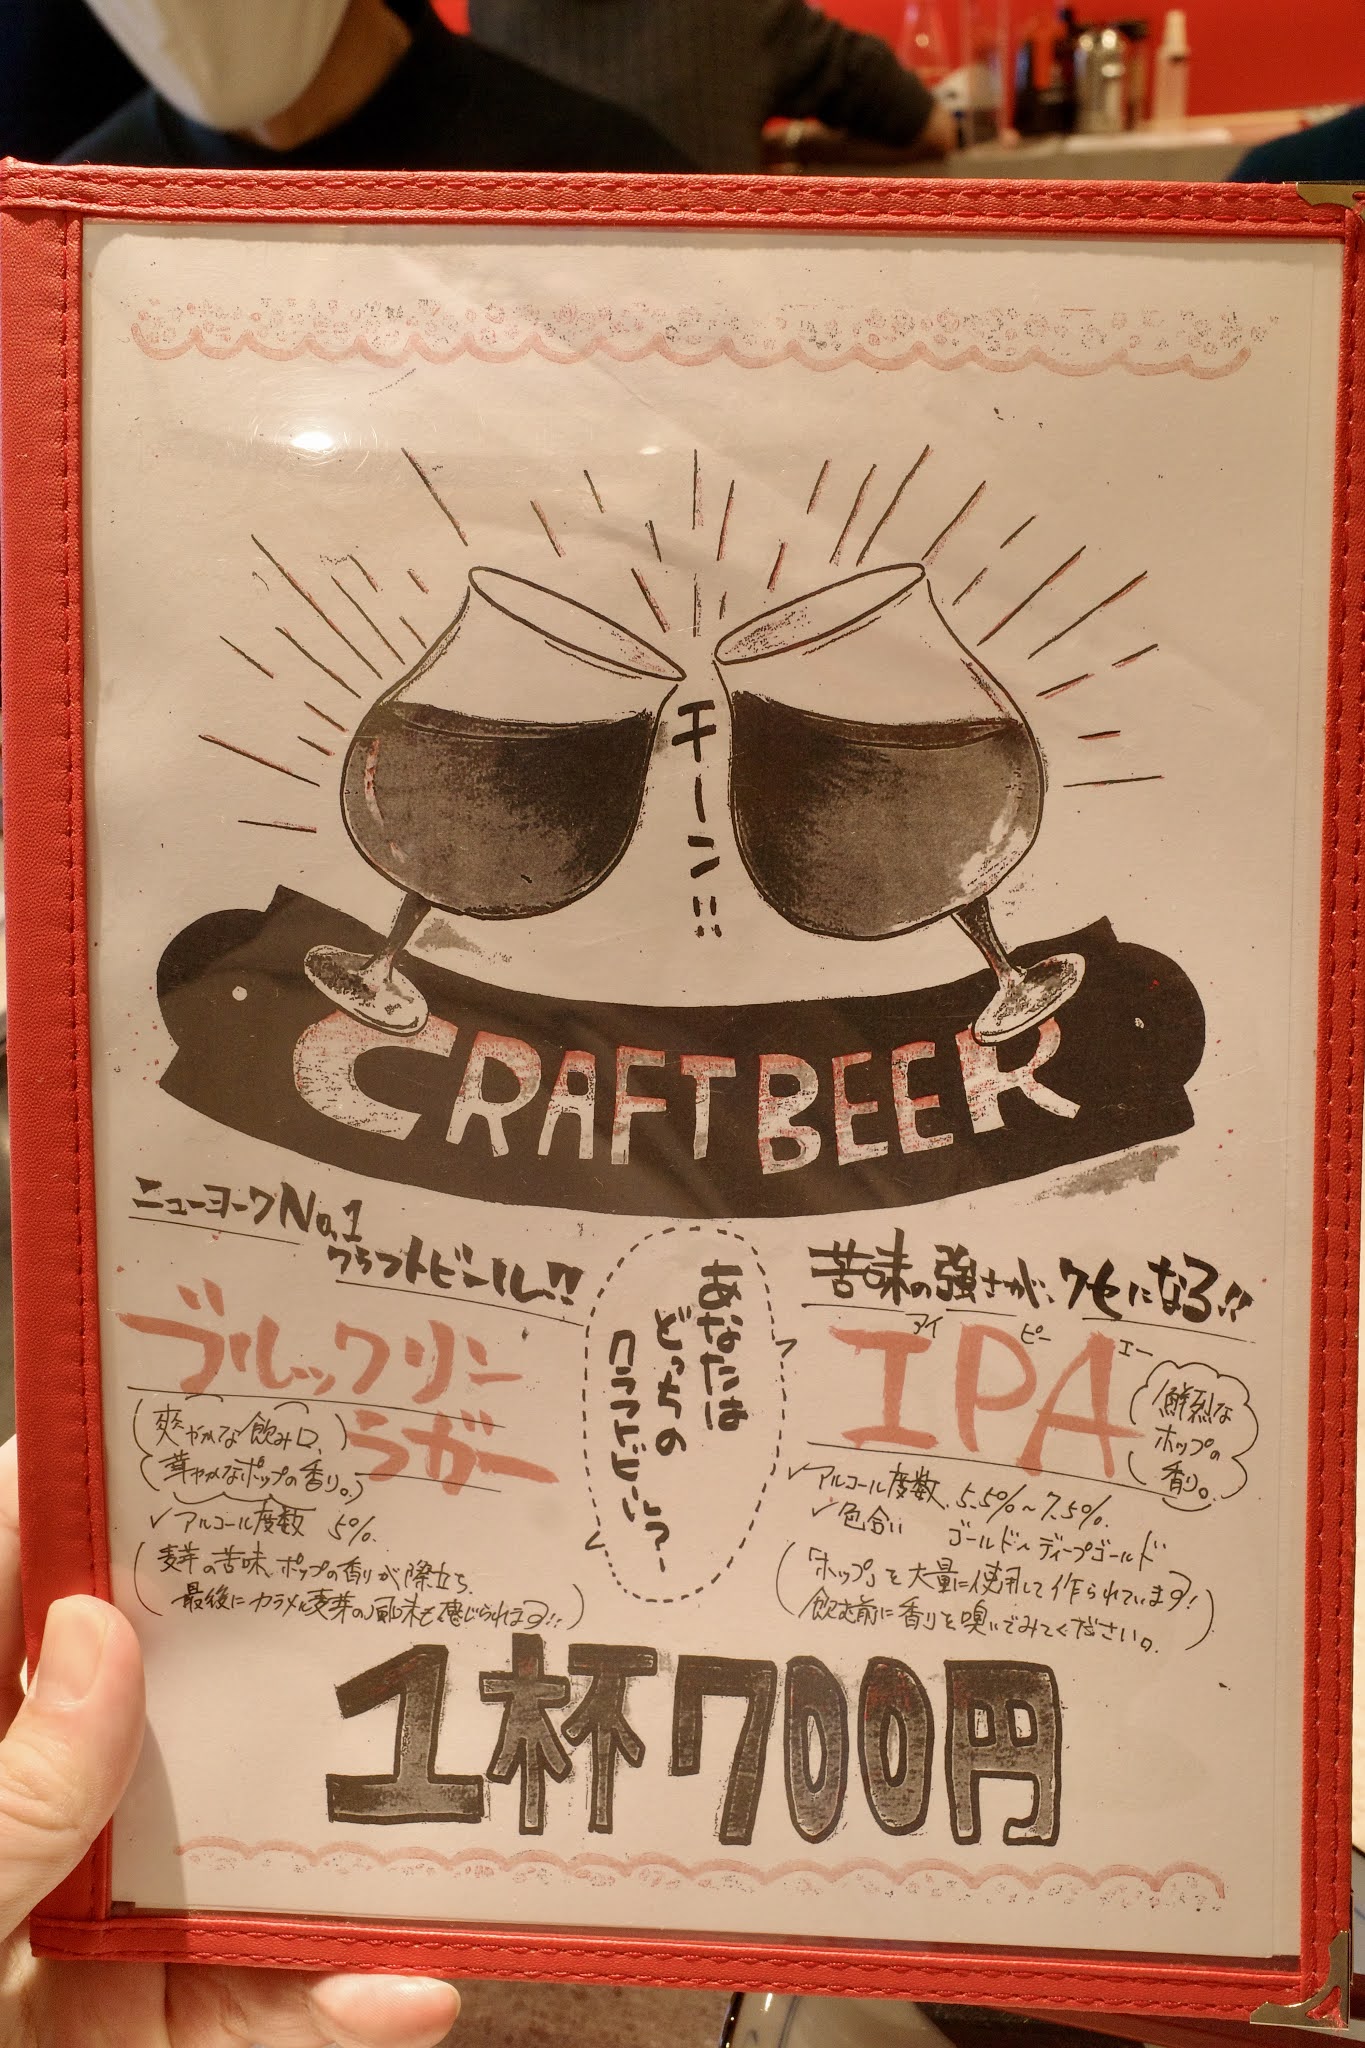 チーン!!
CRAFT BEER
ニューヨークNo.1
クラフトビール!!
ブルックリン
ラガー
爽やかな飲み口、
華やかなホップの香り。
✓アルコール度数 5%.
麦芽の苦味、ホップの香りが際立ち、
最後にカラメル麦芽の風味も感じられます!!
あなたは
どっちの
クラフトビール?
苦味の強さが、クセになる!!
アイ ピー エー
IPA
鮮烈な
ホップの
香り。
✓アルコール度数、5.5%~7.5%.
✓色合い ゴールド~ディープゴールド
「ホップ」を大量に使用して作られています!
飲む前に香りを嗅いでみてください。
1杯700円